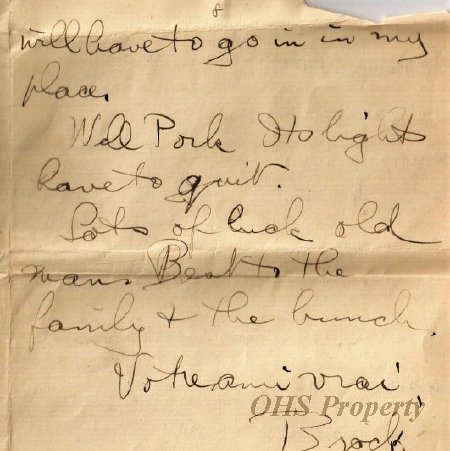 8
will have to go in in my
place.
Well Pork Its lights
have to quit.
Lots of luck old
man. Best to the
family & the bunch.
Votre ami vrai
OHS Property
Brock